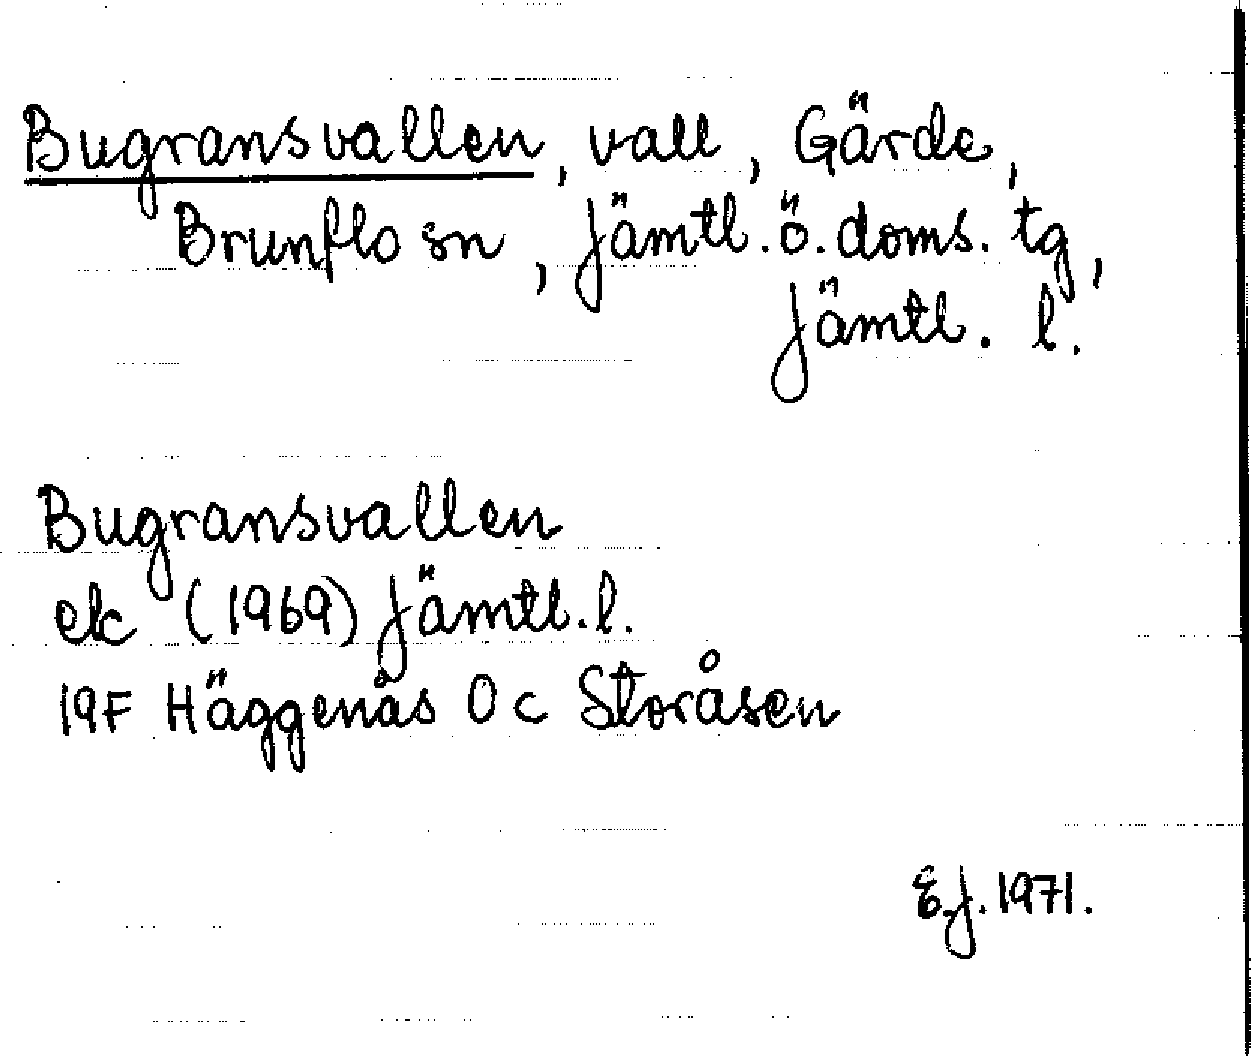 Bugransvallen, vall, Gärde,
Brunflo sn, Jämtl.ö.doms.tg,
Jämtl. l.
Bugransvallen
ek (1969) Jämtl.l.
19F Häggenås 0 c Storåsen
E.J. 1971.